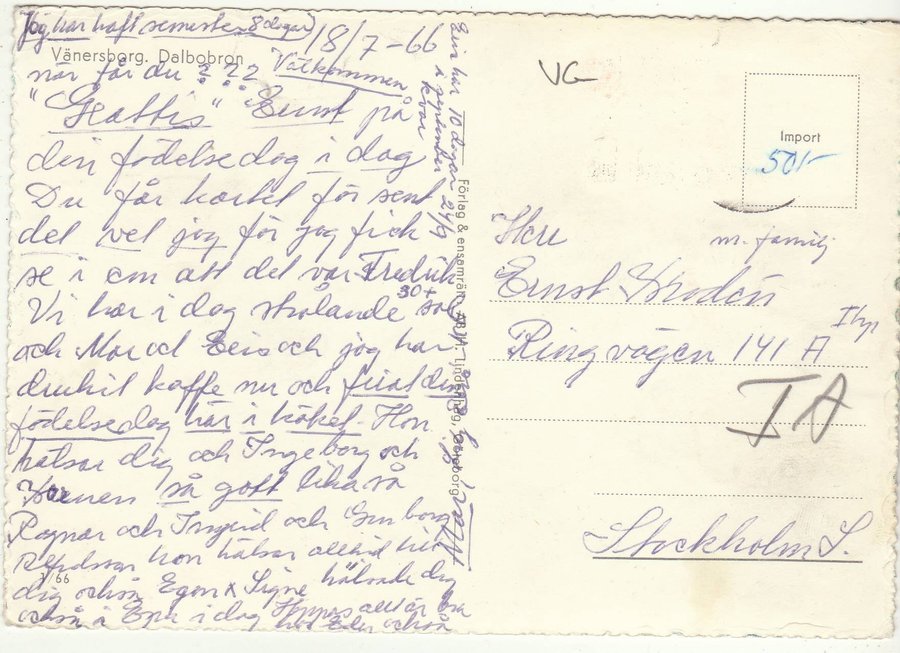 Jag har haft semester 8 dagar
18/7-66
Vänersborg. Dalbobron
när får du ? ? ?
Välkommen
"Grattis" Ernst på
din födelsedag i dag
Du får kortet för sent
det vet jag för jag fick
se i em att det var Fredrik
Vi har i dag strålande 30+ sol
och Mor och och jag har
druckit kaffe nu och firat din
födelsedag här i köket. Hon
hälsar dig och Ingeborg och
så gott lika så
Ragnar och Ingrid och Gun borg
hon hälsar alltid till
dig också Egon x Signe hälsade dig
också i dag Hoppas allt är bra
hos Eder också
1/66
har 10 dagar
i september
kvar 24/9
Förlag & ensamrätt: AB H. Lindenhag, Göteborg
VG
Import
50:-
Herr
m. familj
Ernst
Ringvägen 141 A
I A
Stockholm S.